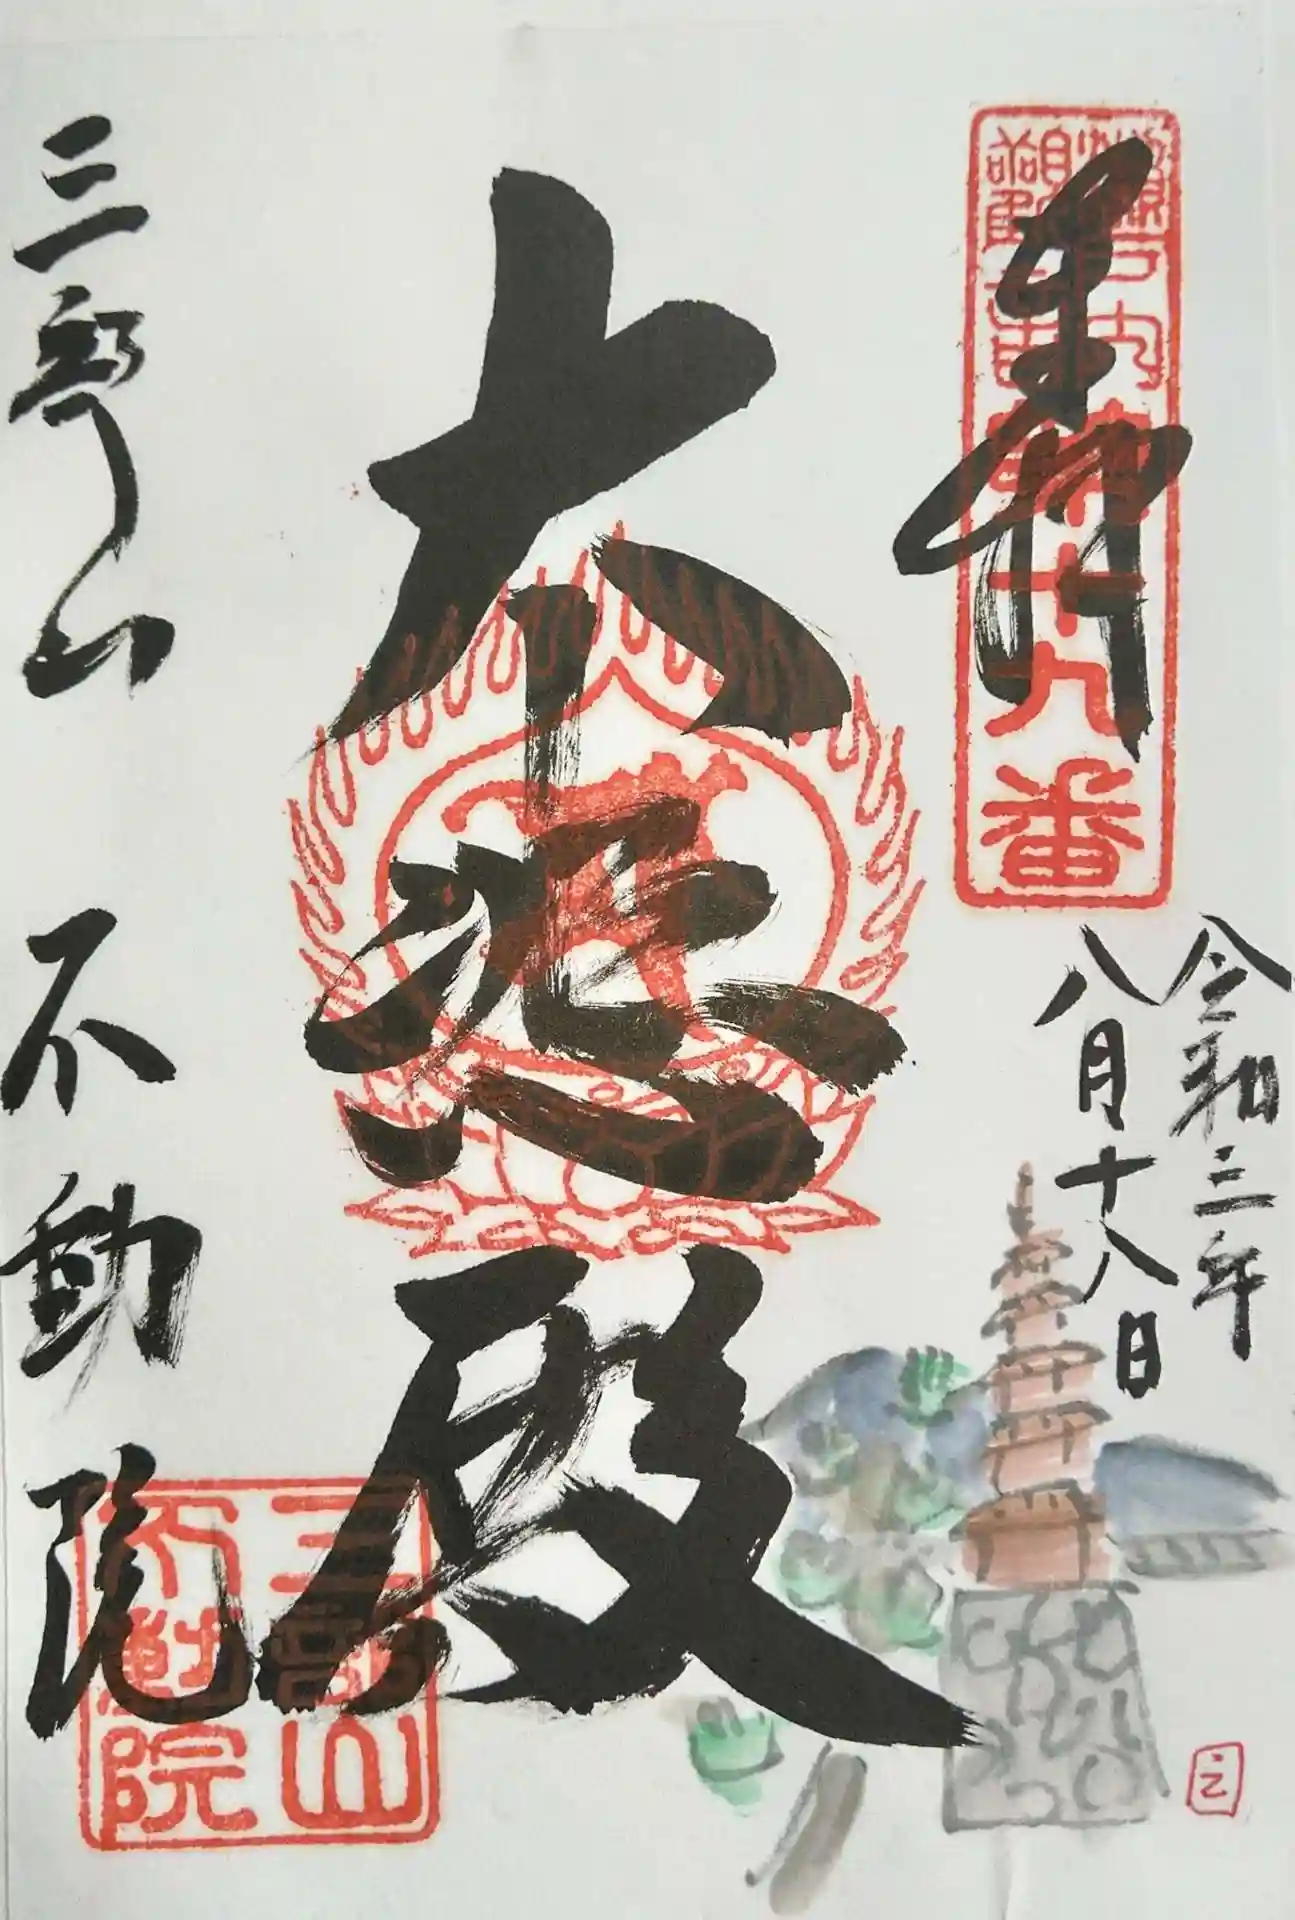 奉拝
第十九番
令和三年
八月十八日
大悲殿
三郎山 不動院
三郎山
不動院